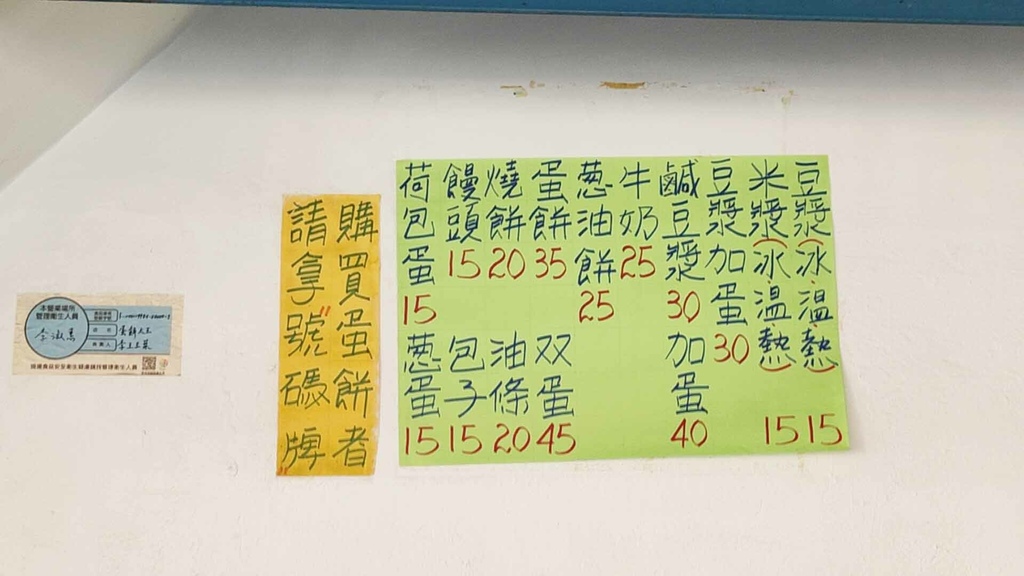 豆漿(冰.溫.熱) 15
米漿(冰.溫.熱) 15
豆漿加蛋 30
鹹豆漿 30
加蛋 40
牛奶 25
葱油餅 25
蛋餅 35
双蛋 45
燒餅 20
油條 20
饅頭 15
包子 15
荷包蛋 15
葱蛋 15
購買蛋餅者
請拿"號碼牌"
本營業場所
管理衛生人員